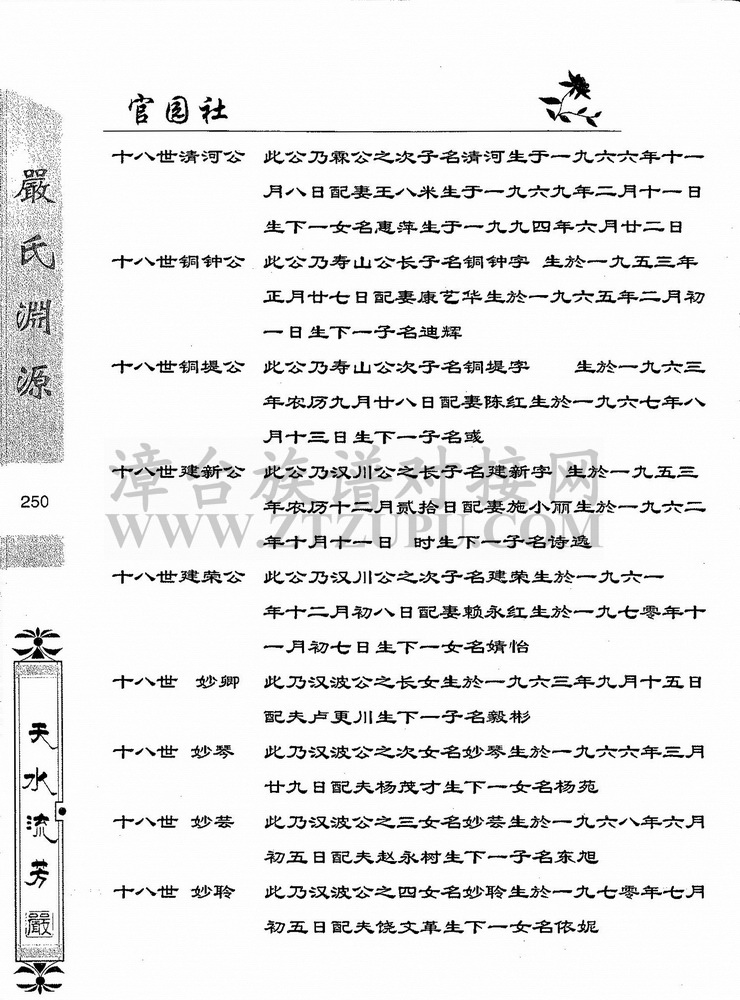 官园社
十八世清河公 此公乃霖公之次子名清河生于一九六六年十一
月八日配妻王八米生于一九六九年二月十一日
生下一女名惠萍生于一九九四年六月廿二日
十八世铜钟公 此公乃寿山公长子名铜钟字 生於一九五三年
正月廿七日配妻康艺华生於一九六五年二月初
一日生下一子名迪辉
十八世铜堤公 此公乃寿山公次子名铜堤字 生於一九六三
年农历九月廿八日配妻陈红生於一九六七年八
月十三日生下一子名或
十八世建新公 此公乃汉川公之长子名建新字 生於一九五三
年农历十二月贰拾日配妻施小丽生於一九六二
年十月十一日 时生下一子名诗逸
十八世建荣公 此公乃汉川公之次子名建荣生於一九六一
年十二月初八日配妻赖永红生於一九七零年十
一月初七日生下一女名婧怡
十八世 妙卿 此乃汉波公之长女生於一九六三年九月十五日
配夫卢更川生下一子名毅彬
十八世 妙琴 此乃汉波公之次女名妙琴生於一九六六年三月
廿九日配夫杨茂才生下一女名杨苑
十八世 妙芸 此乃汉波公之三女名妙芸生於一九六八年六月
初五日配夫赵永树生下一子名东旭
十八世 妙聆 此乃汉波公之四女名妙聆生於一九七零年七月
初五日配夫饶文革生下一女名依妮
嚴氏淵源
250
天水流芳
嚴
漳台族谱对接网
WWW.ZTZUPU.COM